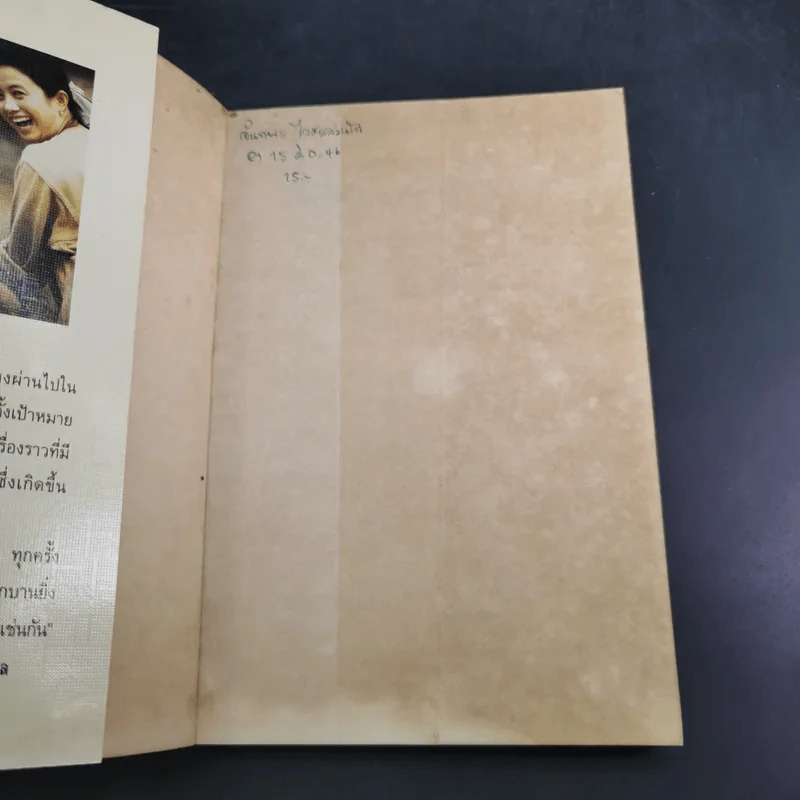 งผ่านไปใน
ั้งเป้าหมาย
รื่องราวที่มี
ซึ่งเกิดขึ้น
ทุกครั้ง
กบานยิ่ง
เช่นกัน"
ล
15 46
15.-